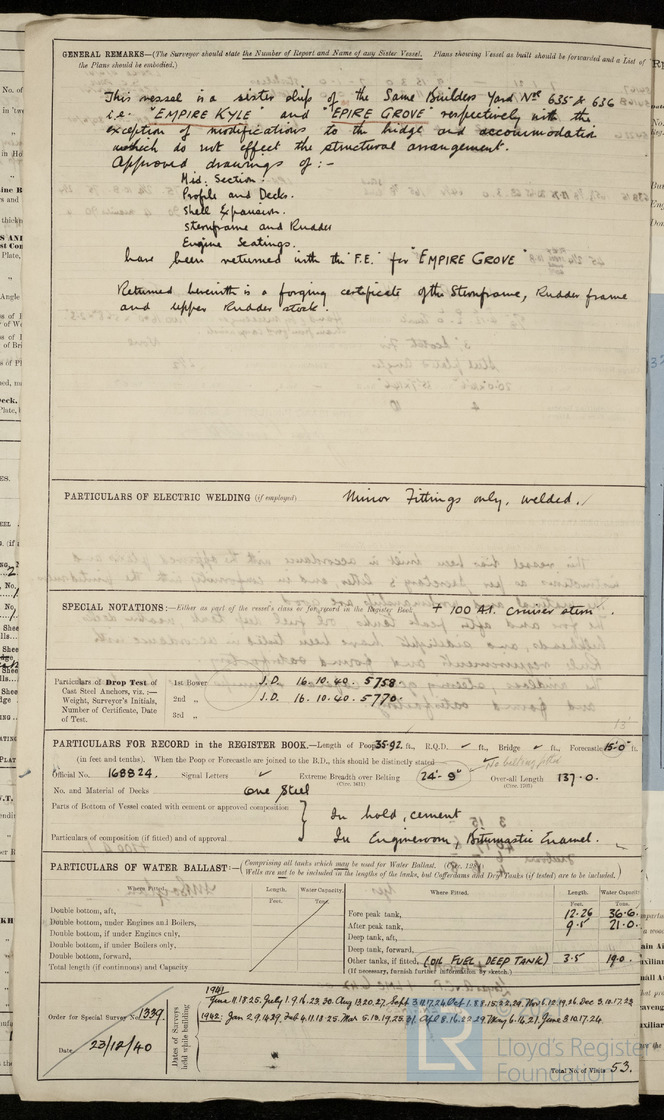 GENERAL REMARKS—(The Surveyor should state the Number of Report and Name of any Sister Vessel. Plans showing Vessel as built should be forwarded and a List of
the Plans should be embodied.)
This vessel is a sister ship of the Same Builders Yard Nos 635 & 636
i.e. "EMPIRE KYLE" and "EPIRE GROVE" respectively with the
exception of modifications to the bridge and accommodation
which do not effect the structural arrangement.
Approved drawings of :-
Mid. Section.
Profile and Decks.
Shell Expansion.
Sternframe and Rudder
Engine Seatings.
have been returned with the F.E. for "EMPIRE GROVE"
Returned herewith is a forging certificate of the Sternframe, Rudder frame
and upper Rudder stock.
PARTICULARS OF ELECTRIC WELDING (if employed) Minor Fittings only, welded.
SPECIAL NOTATIONS:—Either as part of the vessel's class or for record in the Register Book. + 100 A1. cruiser stern
Particulars of Drop Test of
Cast Steel Anchors, viz.:—
Weight, Surveyor's Initials,
Number of Certificate, Date
of Test.
1st Bower J.D. 16.10.40. 5758
2nd „ J.D. 16.10.40. 5770.
3rd „
PARTICULARS FOR RECORD in the REGISTER BOOK.—Length of Poop 35.92 ft., R.Q.D. ✓ ft., Bridge ✓ ft., Forecastle 15.0 ft.
(in feet and tenths). When the Poop or Forecastle are joined to the B.D., this should be distinctly stated
No belting fitted
Official No. 168824. Signal Letters ✓ Extreme Breadth over Belting 24'-9" Over-all Length 137.0.
(Circ. 1611) (Circ. 1703)
No. and Material of Decks One Steel
Parts of Bottom of Vessel coated with cement or approved composition In hold, cement
Particulars of composition (if fitted) and of approval In Engineroom, Bitumastic Enamel.
PARTICULARS OF WATER BALLAST:—(Comprising all tanks which may be used for Water Ballast.
Wells are not to be included in the lengths of the tanks, but Cofferdams and Dry Tanks (if tested) are to be included.)
Where Fitted. Length. Water Capacity. Where Fitted. Length. Water Capacity.
Feet. Tons. Feet. Tons.
Double bottom, aft, Fore peak tank, 12.26 36.6
Double bottom, under Engines and Boilers, After peak tank, 9.5 21.0
Double bottom, if under Engines only, Deep tank, aft,
Double bottom, if under Boilers only, Deep tank, forward,
Double bottom, forward, Other tanks, if fitted, (OIL FUEL, DEEP TANK) 3.5 19.0
Total length (if continuous) and Capacity (If necessary, furnish further information by sketch.)
Order for Special Survey No. 1339.
Date 23/12/40
Dates of Surveys held while building
1941
June 11.18.25. July 1.9.16.23.30. Aug 13.20.27. Sept 3.10.17.24. Oct 1.8.15.22.29. Nov 5.12.19.26 Dec 3.10.17.23
1942: Jan 2.9.14.29. Feb 4.11.18.25. Mar 5.13.19.25.31. Apl 8.16.22.29. May 6.14.21. June 3.10.17.24.
Total No. of Visits 53.
LR
Lloyd's Register
Foundation